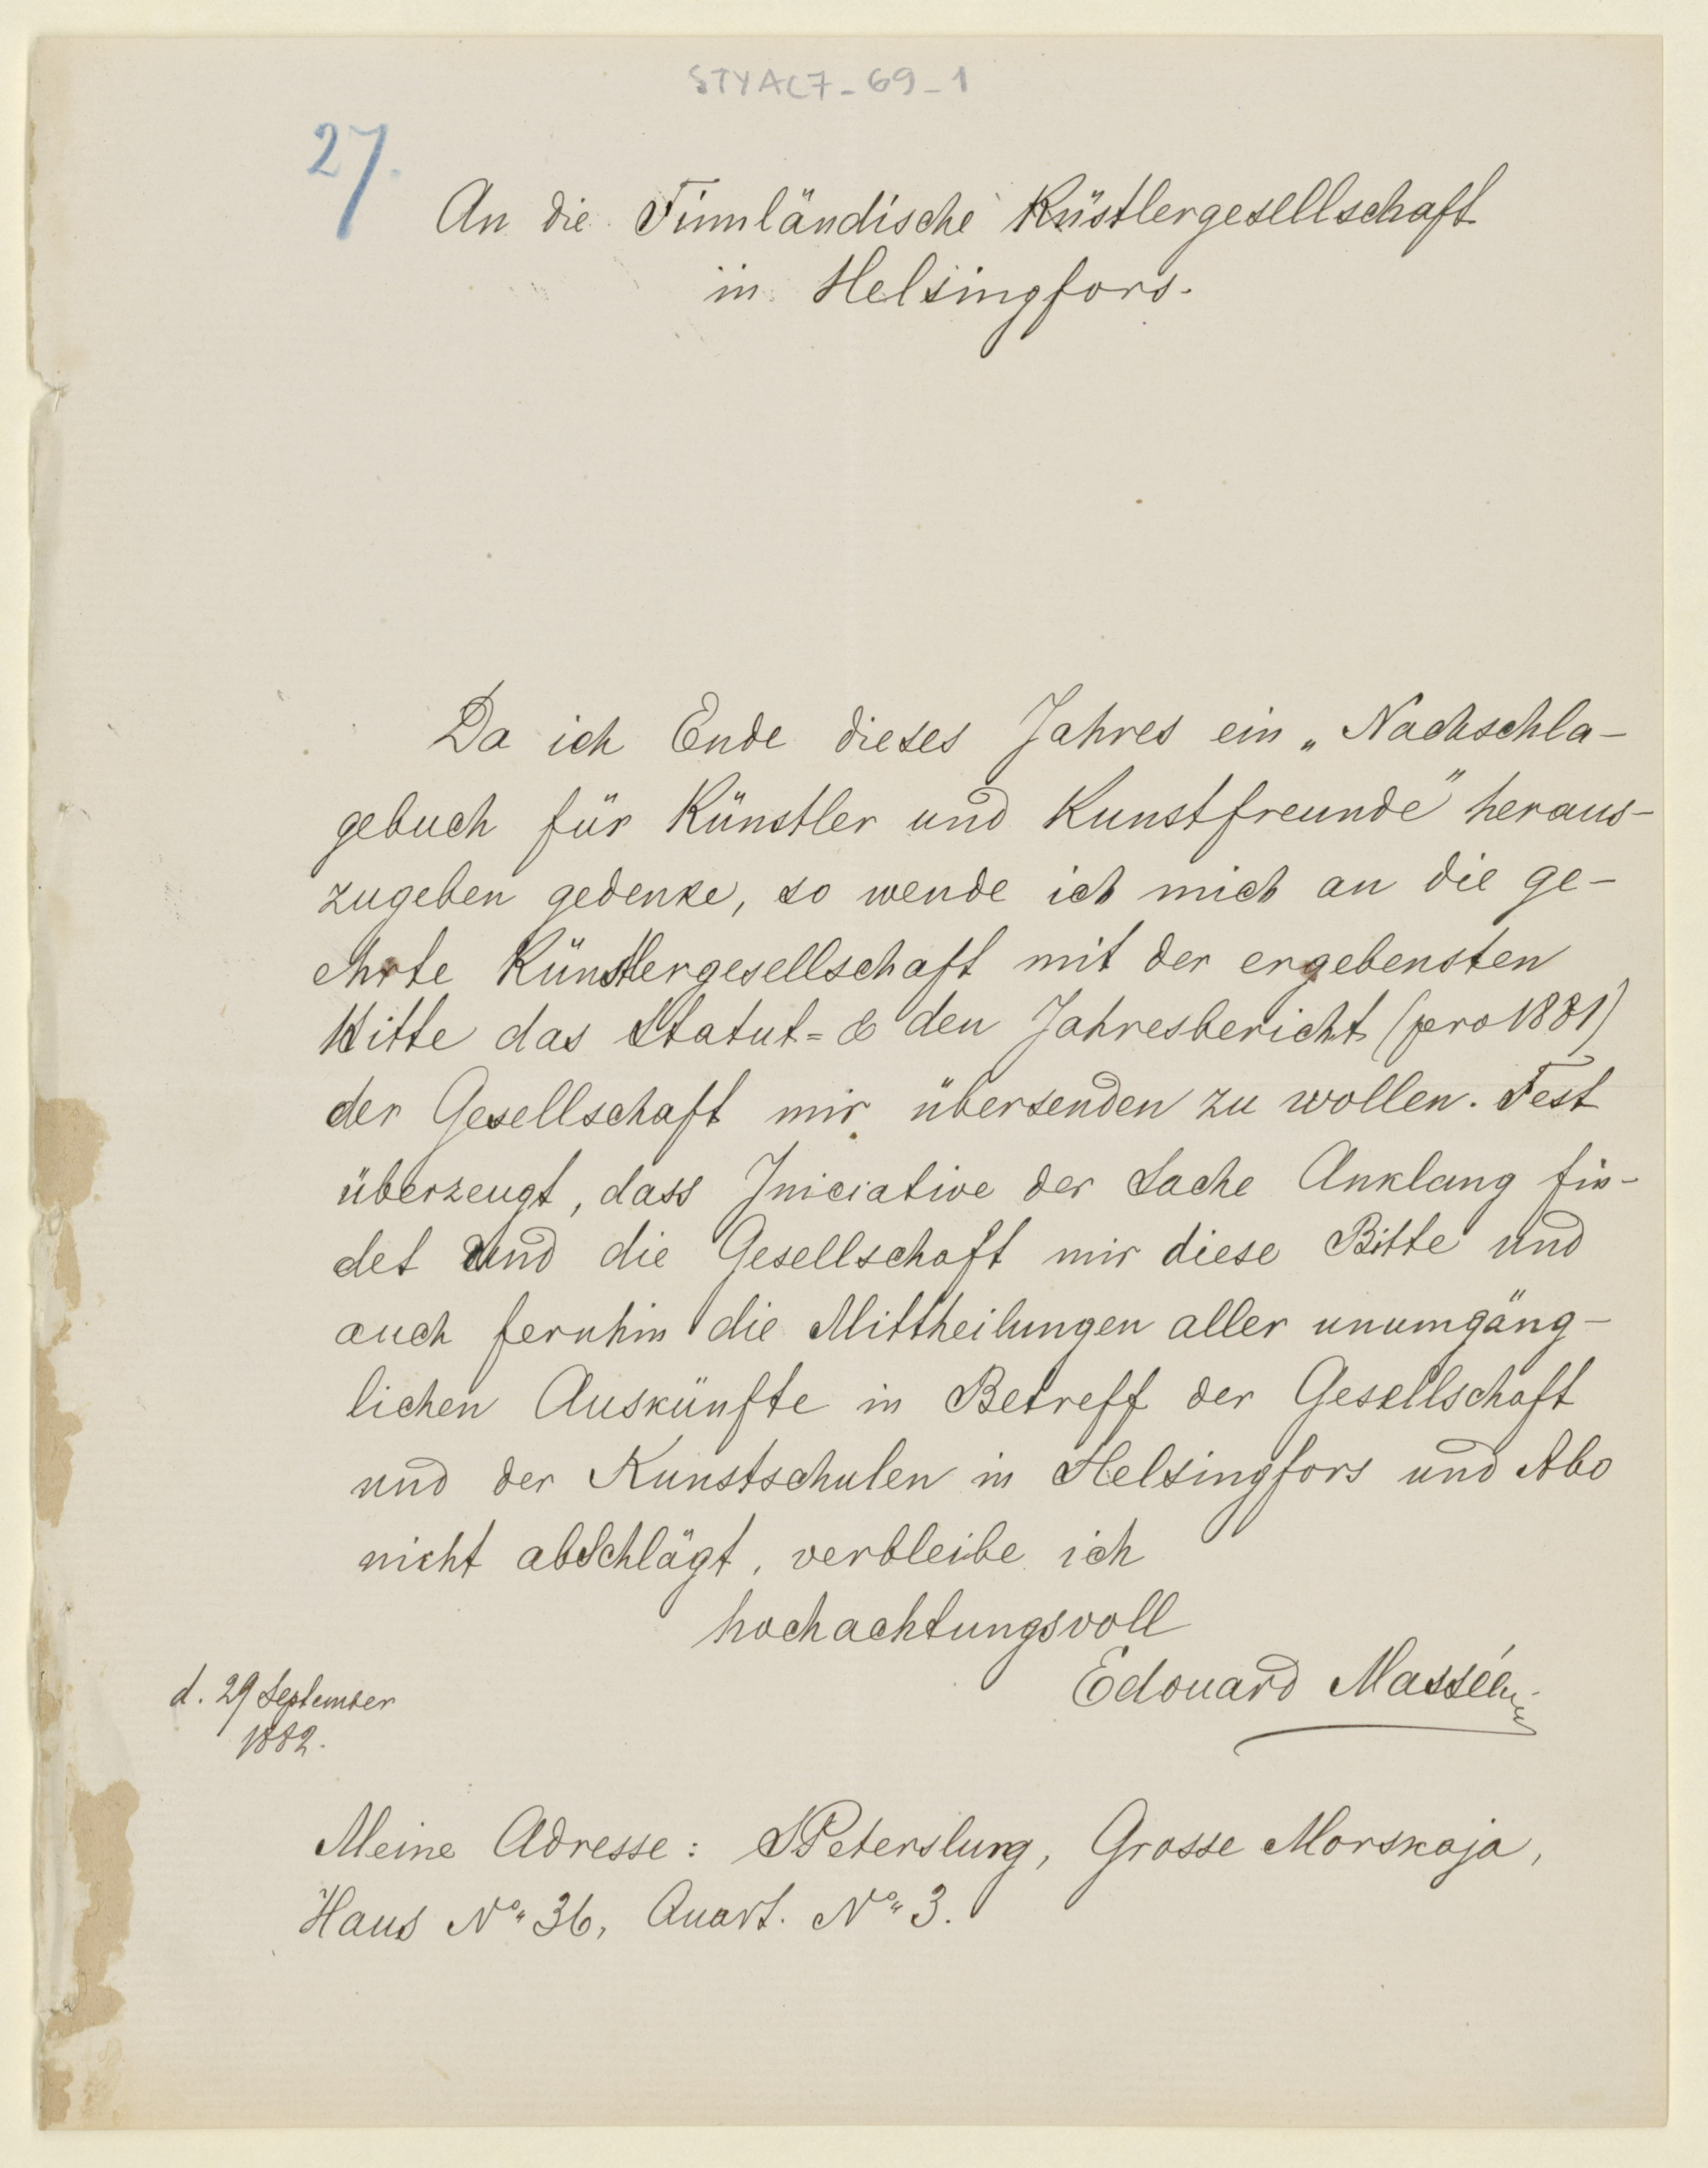 STYAC7-69-1
27.
An die Finnländische Küstlergesellschaft
in Helsingfors.
Da ich Ende dieses Jahres ein „Nachschla-
gebuch für Künstler und Kunstfreunde" heraus-
zugeben gedenke, so wende ich mich an die ge-
ehrte Künstlergesellschaft mit der ergebensten
Bitte das Statut= & den Jahresbericht (pro 1881)
der Gesellschaft mir übersenden zu wollen. Fest
überzeugt, dass Iniciative der Sache Anklang fin-
det und die Gesellschaft mir diese Bitte und
auch fernhin die Mittheilungen aller unumgäng-
lichen Auskünfte in Betreff der Gesellschaft
und der Kunstschulen in Helsingfors und Abo
nicht abschlägt, verbleibe ich
hochachtungsvoll
Edouard
d. 29 September
1882.
Meine Adresse: St Petersburg, Grosse Morskaja,
Haus No 36, Quart. No 3.